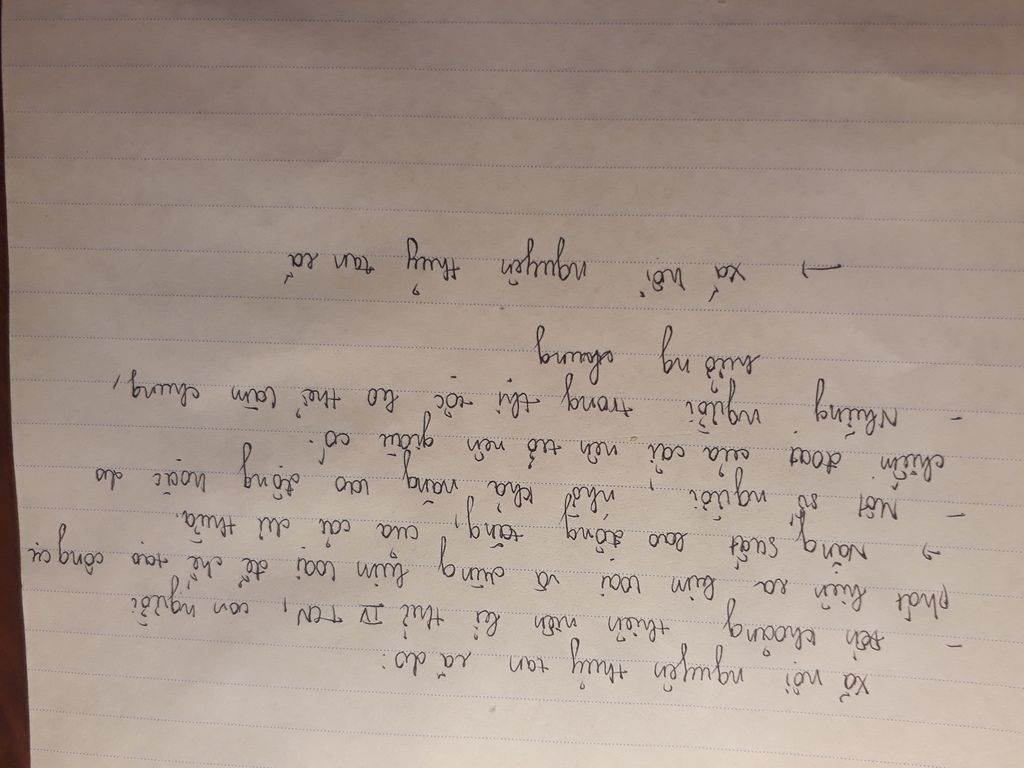 Xã hội nguyên thủy tan rã do:
- Đến khoảng thiên niên kỉ thứ IV TCN, con người
phát hiện ra kim loại và dùng kim loại để chế tạo công cụ
→ Năng suất lao động tăng, của cải dư thừa.
- Một số người, nhờ khả năng lao động hoặc do
chiếm đoạt của cải nên trở nên giàu có.
- Những người trong thị tộc ko thể làm chung,
hưởng chung
→ xã hội nguyên thủy tan rã